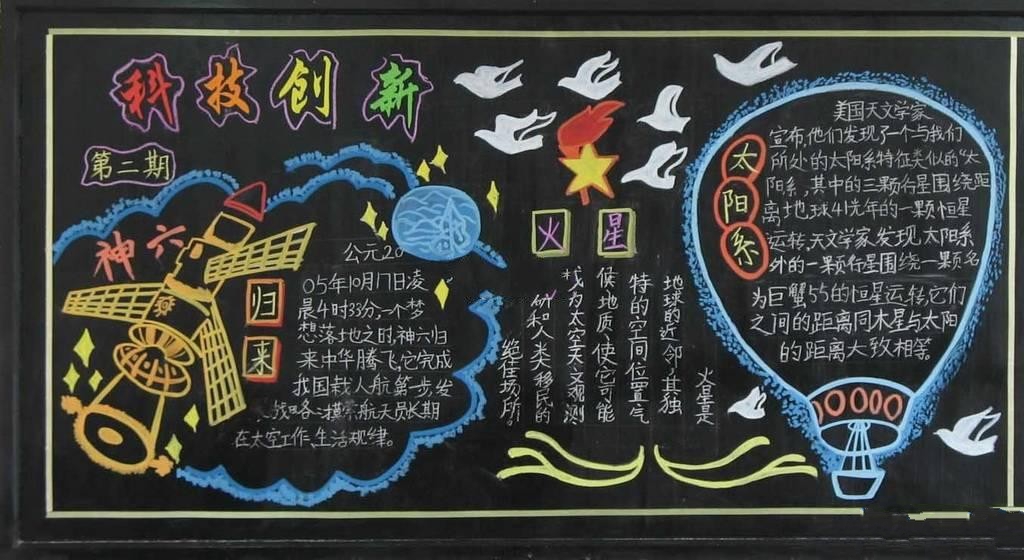 科技创新
第二期
神六
归来
公元20
05年10月17日凌
晨4时33分,一个梦
想落地之时,神六归
来中华腾飞,它完成
我国载人航第一步,发
航天员长期
在太空工作、生活规律。
火星
火星是
地球的近邻,其独
特的空间位置气
候地质,使它可能
成为太空天文观测
和人类移民的
绝佳场所。
太阳系
美国天文学家
宣布,他们发现了一个与我们
所处的太阳系特征类似的“太
阳系,其中的三颗行星围绕距
离地球41光年的一颗恒星
运转,天文学家发现太阳系
外的一颗行星围绕一颗名
为巨蟹55的恒星运转,它们
之间的距离同木星与太阳
的距离大致相等。